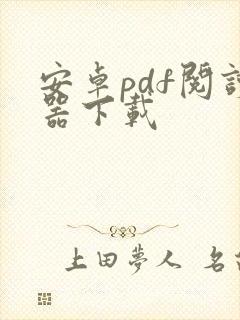 安卓pdf閱
器下載
上田夢人 名